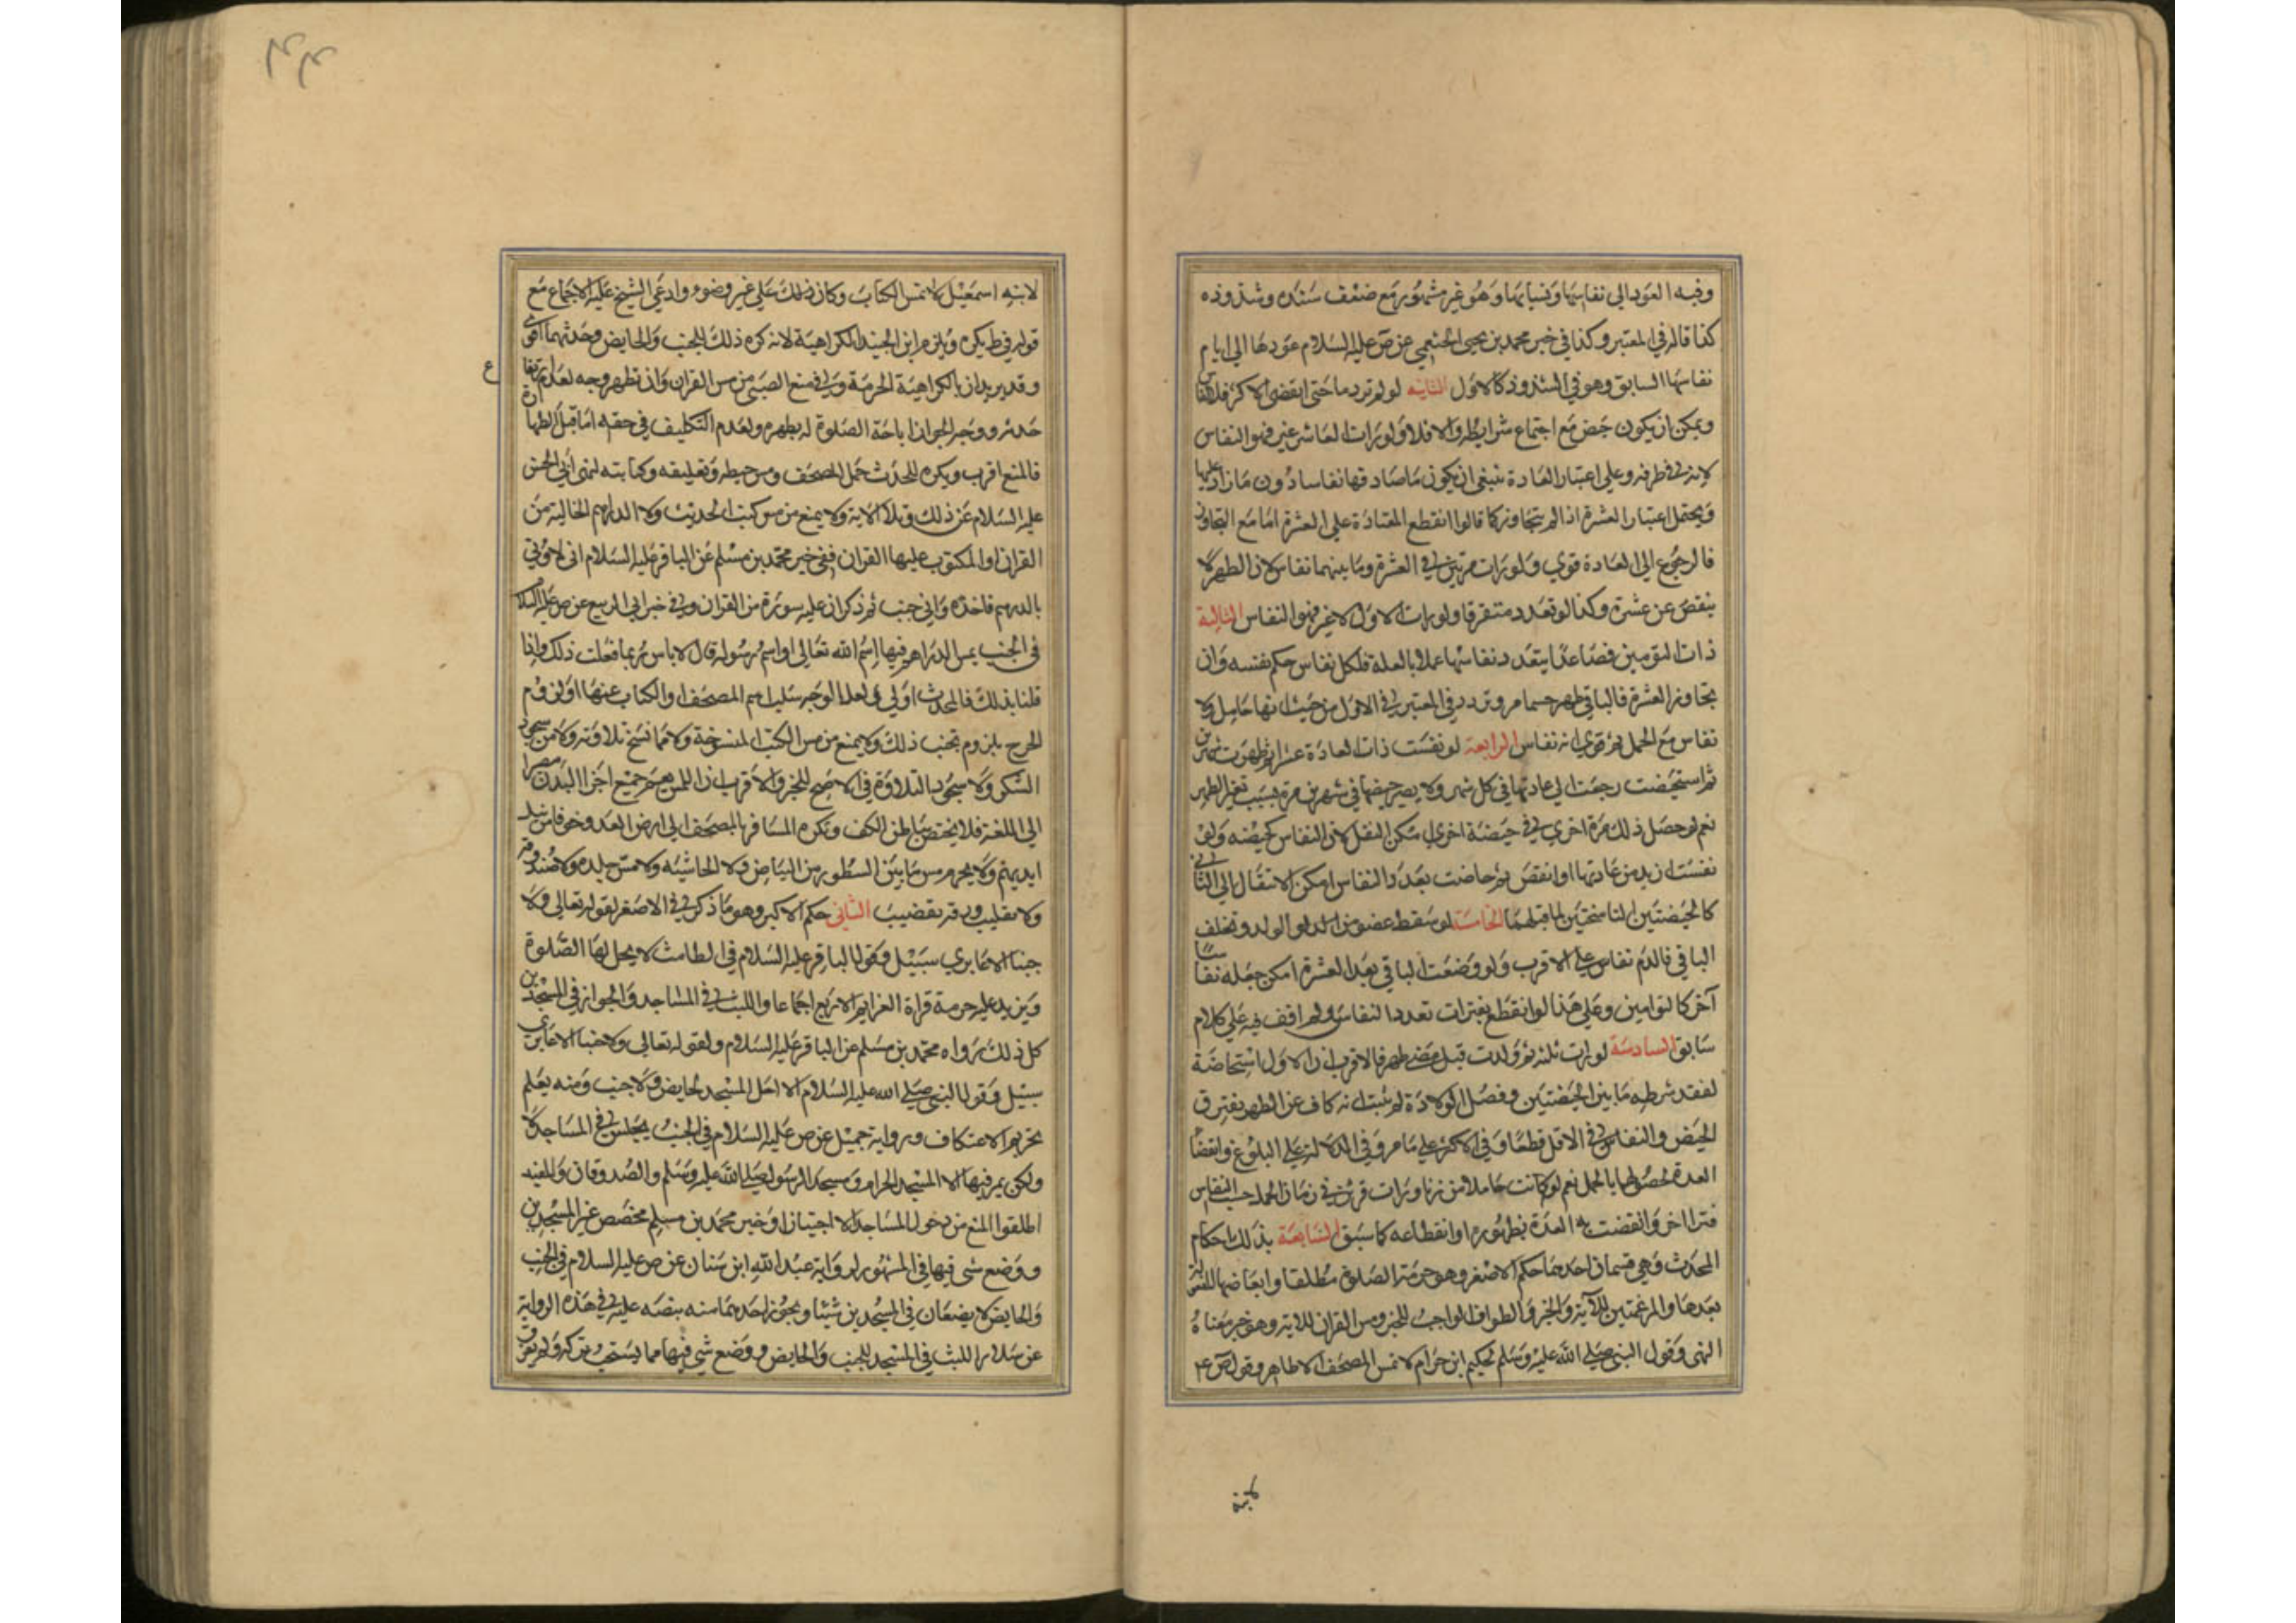 وفيه العود الي نفاسها ونسيانها وهو غير مشهور مع ضعف سنده وشذوذه
كذا قاله في المعتبر وكذا في خبر محمد بن يحيى الخثعمي عن ص عليه السلام عودها الي ايام
نفاسها السابق وهو في الشذوذ كالاول الثانيه لو لم تر دما حتى انقضى الاكثر فلا نفاس
ويمكن ان يكون حيض مع اجتماع شرايطه والا فلا ولو رات العاشر غير فهو النفاس
لانه في طرفه وعلي اعتبار العادة ينبغي ان يكون ما صادفها نفاسا دون ما زاد عليها
ويحتمل اعتبار العشرة اذا لم يتجاوز كما قالوا انقطع المعتادة على العشرة اما مع التجاوز
فالرجوع الي العادة قوي ولو رات مرتين في العشرة وما بينهما نفاس لان الطهر لا
ينقص عن عشرة وكذا لو تعدد متفرقا ولو رات الاول لا غير فهو النفاس الثالثة
ذات التومين فصاعدا يتعدد نفاسها عملا بالعلة فلكل نفاس حكم نفسه وان
تجاوز العشرة فالباقي طهر حسما مر وتردد في المعتبر في الاول من حيث انها حامل ولا
نفاس مع الحمل ثم قوي انه نفاس الرابعة لو نفست ذات العادة عشرا ثم طهرت شهرين
ثم استحيضت رجعت الي عادتها في كل شهر ولا يصير حيضها في شهرين مرة بسبب تغير الطهر
نعم لو حصل ذلك مرة اخري في حيضة اخري امكن النقل لان النفاس كحيضه ولو
نفست ازيد من عادتها او انقص ثم حاضت بعدد النفاس امكن الانتقال الي الثاني
كالحيضتين الناسختين لما قبلهما الخامسة لو سقط عضو من الولد وتخلف
الباقي فالدم نفاس على الاقرب ولو وضعت الباقي بعد العشرة امكن جعله نفاسا
آخر كالتوامين وعلي هذا لو انقطع بفترات تعدد النفاس ولم اقف فيه علي كلام
سابق السادسة لو رات ثلثه ثم ولدت قبل مضي طهر فالاقرب ان الاول استحاضة
لفقد شرطه ما بين الحيضتين وفصل الولادة لم يثبت انه كاف عن الطهر يفترق
الحيض والنفاس في الاقل قطعا وفي الاكثر علي ما مر وفي الدلالة علي البلوغ وانقضا
العدة لحصولها بالحمل نعم لو كانت حاملا من زنا ورات قرئين في زمان الحمل حسب النفاس
قرا اخر وانقضت به العدة بظهوره او انقطاعه كما سبق السابعة بذلك احكام
المحدث وهي قسمان احدهما حكم الاصغر وهو حرمة الصلوة مطلقا وابعاضها
بعدها والمرغمتين للآية والخبر والطواف الواجب للخبر ومس القران للاية وهو خبر معناه
النهي وقول النبي صلي الله عليه وسلم لحكيم ابن حزام لا تمس المصحف الا طاهر وقول ص ع
لابنه
۲۴۴
لابنه اسمعيل لا تمس الكتاب وكان ذلك علي غير وضوء وادعي الشيخ عليه الاجماع مع
قوله في ط يكره ويلزم ابن الجنيد الكراهية لانه كره ذلك للجنب والحايض وحدثهما اقوي
وقد يريد بالكراهية الحرمة وفي منع الصبي من مس القران وان تطهر وجه لعدم ارتفاع
حدثه ووجه الجواز اباحة الصلوة له بطهره ولعدم التكليف في حقه اما قبل الطهارة
فالمنع اقرب ويكره للمحدث حمل المصحف ومس خيطه وتعليقه وكتابته لنهي ابي الحسن
عليه السلام عن ذلك وتلا الآية ولا يمنع من مس كتب الحديث ولا الدراهم الخالية من
القران او المكتوب عليها القران ففي خبر محمد بن مسلم عن الباقر عليه السلام اني لاوتي
بالدرهم فاخذه واني جنب ثم ذكر ان عليه سورة من القران وفي خبر ابي الربيع عن ص عليه السلام
في الجنب يمس الدراهم فيها اسم الله تعالى او اسم رسوله قال لا باس ربما فعلت ذلك واذا
قلنا بذلك فالمحدث اولي ولعل الوجه سلب اسم المصحف او الكتاب عنها او لزوم
الحرج بلزوم تجنب ذلك ولا يمنع من مس الكتب المنسوخة ولا مما نسخ تلاوته ولا من سجود
الشكر ولا سجود التلاوة في الاصح للخبر والاقرب ان اللمس يعم جميع اجزا البدن مصيرا
الي اللغة فلا يختص بباطن الكف ويكره المسافر بالمصحف الي ارض العدو خوفا من نيل
ايديهم ولا يحرم مس ما بين السطور من البياض ولا الحاشيه ولا مس جلده ولا صندوقه
ولا تقليب ورقه بقضيب الثاني حكم الاكبر وهو ما ذكر في الاصغر لقوله تعالى ولا
جنبا الا عابري سبيل وقول الباقر عليه السلام في الطامث لا يحل لها الصلوة
ويزيد عليه حرمة قراة العزايم الاربع اجماعا واللبث في المساجد والجواز في المسجدين
كل ذلك رواه محمد بن مسلم عن الباقر عليه السلام ولقوله تعالى ولا جنبا الا عابري
سبيل وقول النبي صلي الله عليه السلام لا احل المسجد لحايض ولا جنب ومنه يعلم
تحريم الاعتكاف ورواية جميل عن ص عليه السلام في الجنب يجلس في المساجد لا
ولكن يمر فيها الا المسجد الحرام ومسجد الرسول صلي الله عليه وسلم والصدوقان والمفيد
اطلقوا المنع من دخول المساجد الا اجتيازا وخبر محمد بن مسلم مخصص غير المسجدين
ووضع شي فيها في المشهور لرواية عبد الله ابن سنان عن ص عليه السلام في الجنب
والحايض لا يضعان في المسجدين شيئا ويجوز اخدهما منه بنصه عليه في هذه الرواية
عن سلار اللبث في المسجد للجنب والحايض ووضع شي فيها مما يستحب تركه ولم يفرق
ع